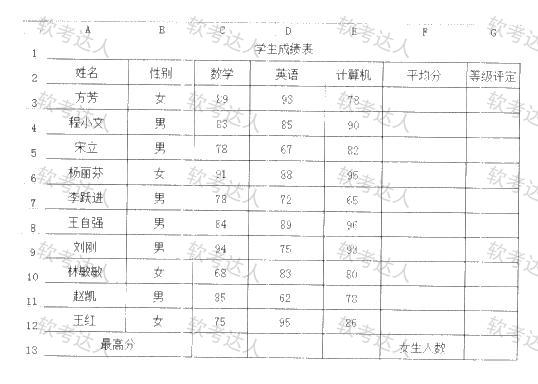 A B C D E F G
1 学生成绩表
2 姓名 性别 数学 英语 计算机 平均分 等级评定
3 方芳 女 89 93 78
4 程小文 男 83 85 90
5 宋立 男 78 67 82
6 杨丽芬 女 91 88 95
7 李跃进 男 78 72 65
8 王自强 男 84 89 96
9 刘刚 男 94 75 93
10 林敏敏 女 68 83 80
11 赵凯 男 85 62 78
12 王红 女 75 95 86
13 最高分 女生人数
软考达人